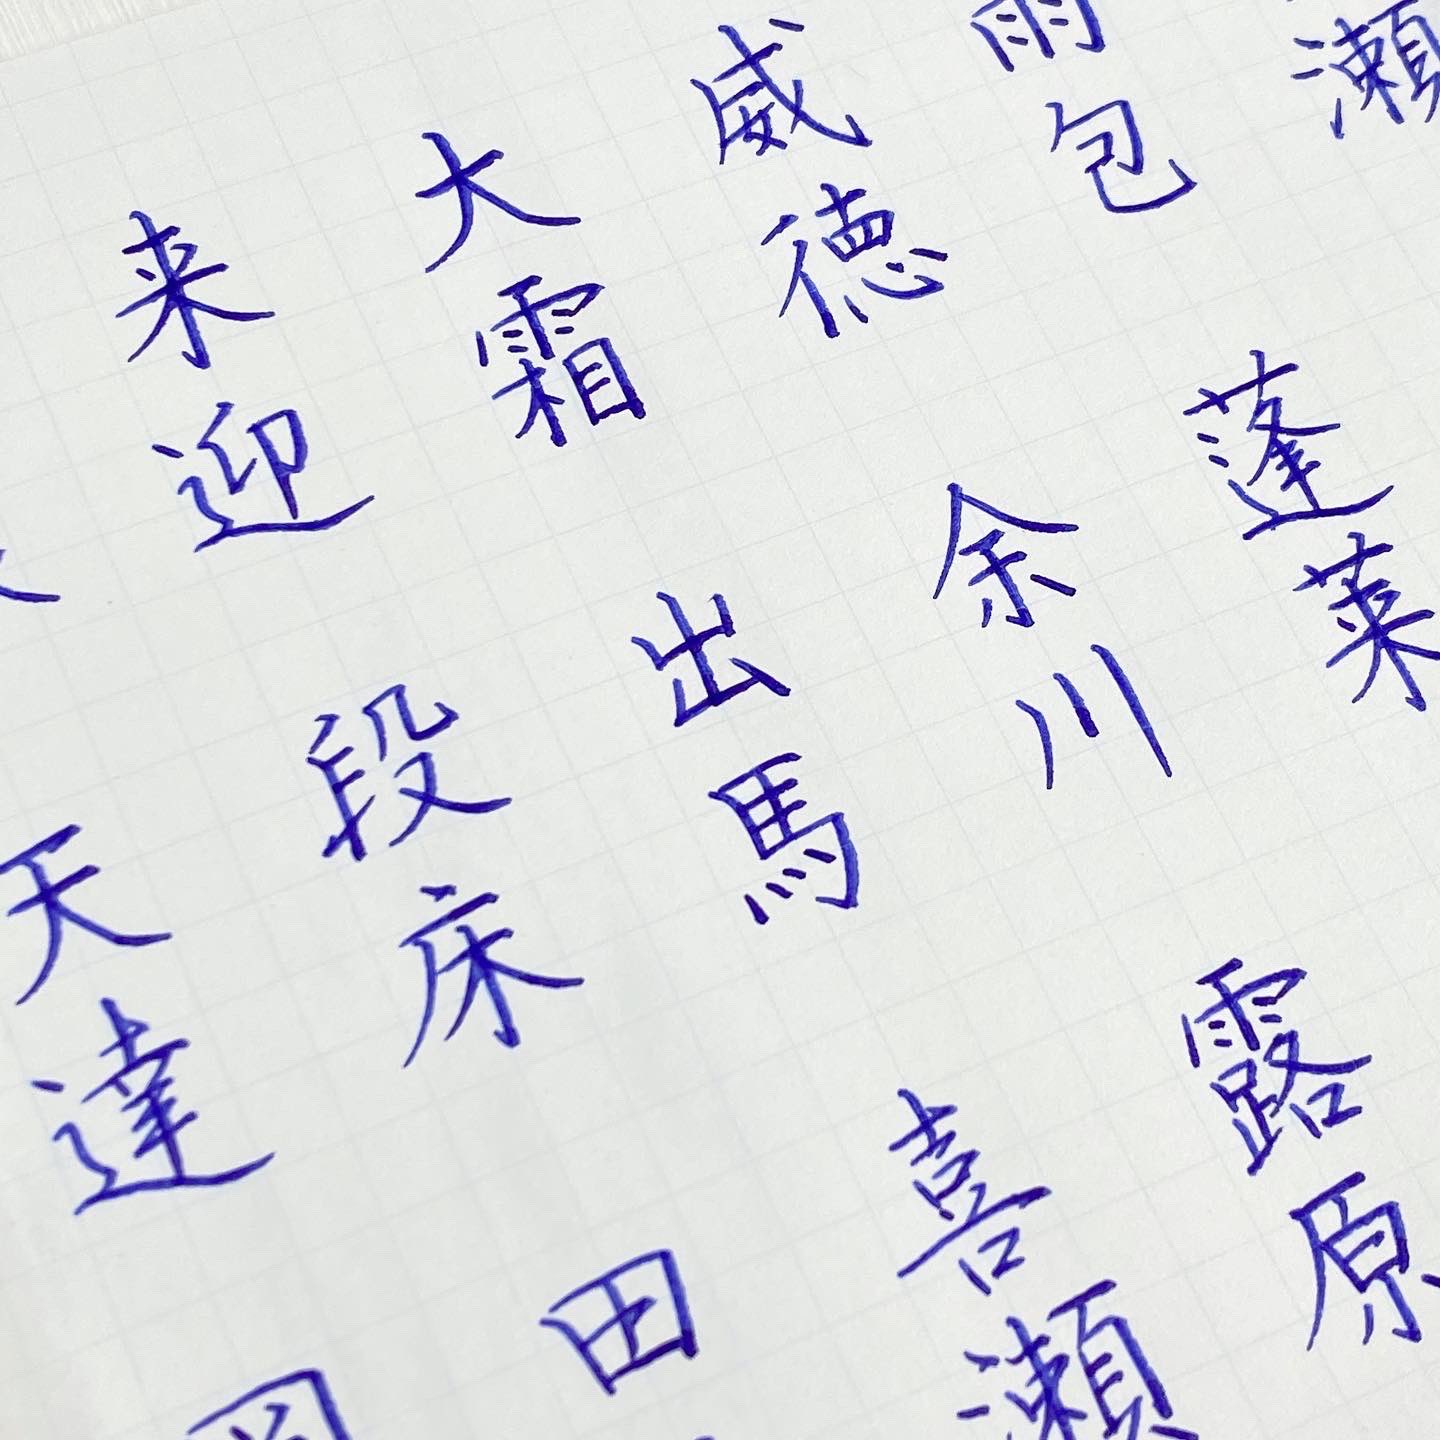 瀬
雨包
蓬莱
威徳
余川
露原
大霜
出馬
喜瀬
来迎
段床
田
天達